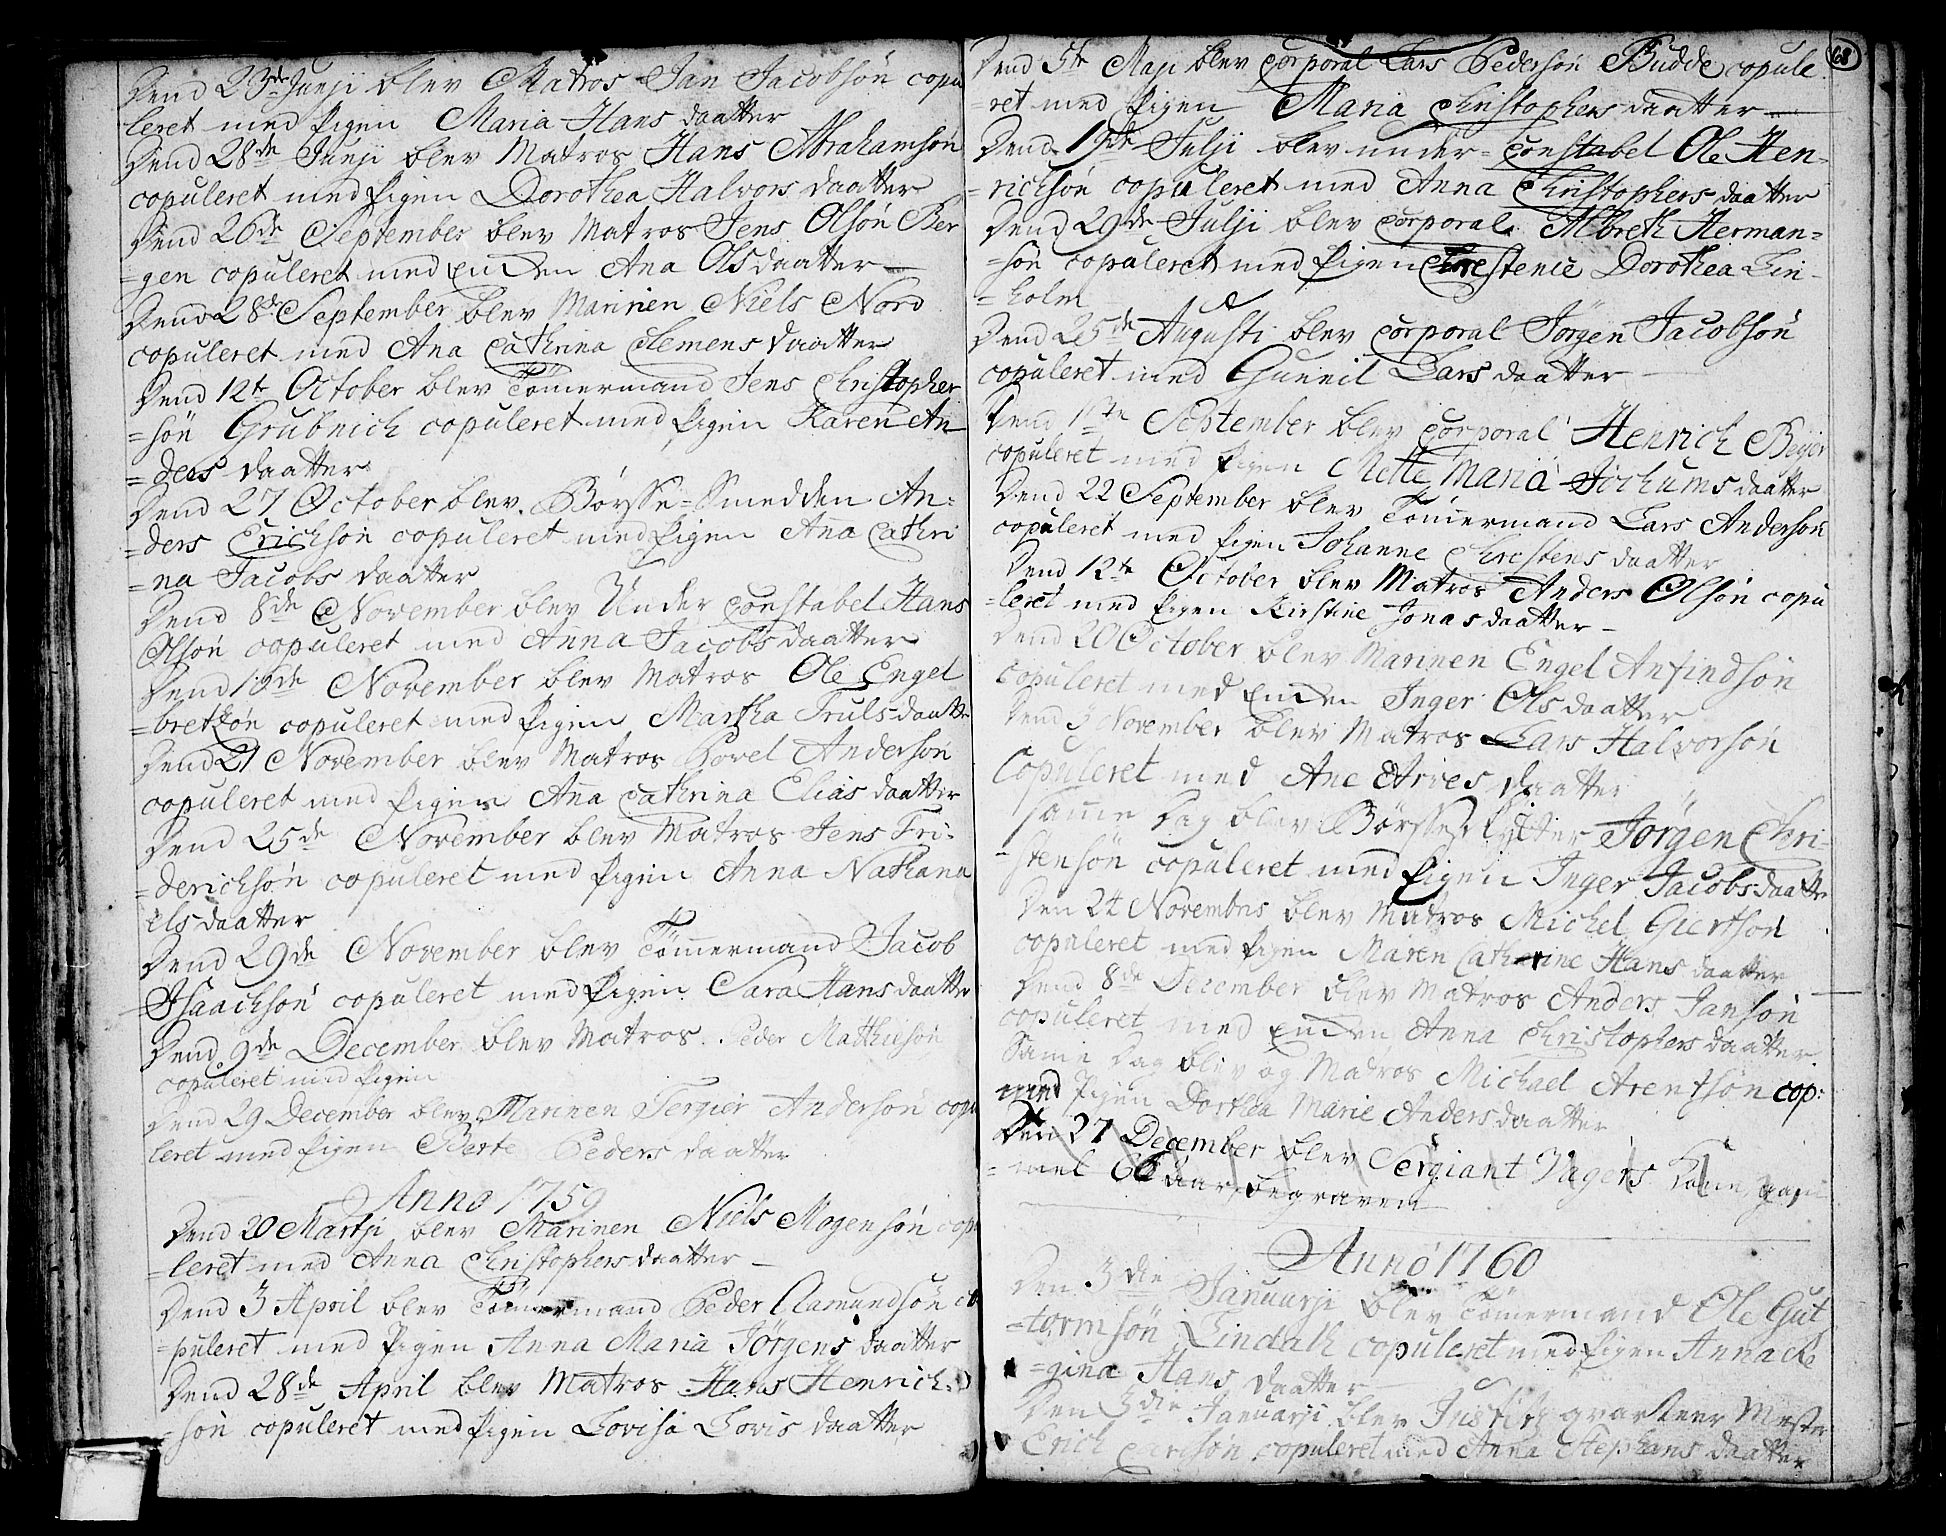 Dend 23de Junji blev Matros Jan Jacobsön copu
leret med Pigen Maria Hans daatter
Dend 28de Junji blev Matros Hans Abrahamsön
copuleret med Pigen Dorothea Halvors daatter
Dend 26de September blev Matros Jens Olsön Ber
=gen copuleret med Enden Ana Olsdaatter
Dend 28de September blev Marinen Niels Nord
copuleret med Ana Cathrina Clemens daatter
Dend 12te October blev Tömermand Jens Christopher
=sön Grubnich copuleret med Pigen Karen An
=ders daatter
Dend 27 October blev Börsse=Smedden An=
=ders Erichsön copuleret med Pigen Ana Cathri
=na Jacobs daatter
Dend 8de November blev Under Constabel Hans
Olsön copuleret med Anna Jacobsdaatter
Dend 16de November blev Matros Ole Engel
=bretzön copuleret med Pigen Martha Truls-daatter
Dend 21 November blev Matros Povel Anderson
copuleret med Pigen Ana Cathrina Elias daatter
Dend 25de November blev Matros Jens Fri-
=derichsön copuleret med Pigen Anna Nathana
elsdaatter
Dend 29de November blev Tömermand Jacob
Isaachsön copuleret med Pigen Sara Hans daatter
Dend 9de December blev Matros Peder Mathiisön
copuleret med Pigen
Dend 29 December blev Marinen Tergier Andersön copu
leret med Pigen Berte Peders daatter
Anno 1759
Dend 20 Martji blev Marinen Niels Mogensön cop
=leret med Anna Christophersdaatter
Dend 3 April blev Tömermand Peder Aamundsön co
=puleret med Pigen Anna Maria Jörgens daatter
Dend 28de April blev Matros Hans Henrich=
=sön copuleret med Pigen Lovisa Lovis daatter
68
Dend 5te Maji blev Corporal Lars Pedersön Budde copule
=ret med Pigen Maria Christophers daatter
Dend 19de Julji blev under=Constabel Ole Hen=
=richsön copuleret med Anna Christophers daatter
Dend 29de Julji blev Corporal Albreth Herman=
=sön copuleret med Pigen Chrestence Dorothea Lin-
=holm
Dend 25de Augusti blev Corporal Jörgen Jacobsön
copuleret med Gunnil Lars daatter
Dend 1ste September blev Corporal Henrich Beyer
copuleret med Pigen Mette Maria Jochums daatter
Dend 22 September blev Tömermand Lars Andersön
copuleret med Pigen Johanne Chrestens daatter
Dend 12te October blev Matros Anders Olsön copu
=leret med Pigen Kirstine Jonas daatter
Dend 20 October blev Marinen Engel Anfindsön
copuleret med Enden Inger Olsdaatter
Dend 3 November blev Matros Lars Halvorsön
Copuleret med Ane Aries daatter
Samme Dag blev Börsseskytter Jörgen Chri-
=stensön copuleret med Pigen Inger Jacobsdaatter
Den 24 Novembris blev Matros Michel Giertsön
copuleret med Pigen Maren Catharine Hans daatter
Dend 8de December blev Matros Anders Jansön
copuleret med Enden Anna Christophers daatter
Same Dag blev og Matros Michael Arentsön cop:
med Pigen Dorthea Marie Anders daatter
Den 27 December blev Sergiant Vagers Kone gam
=mel 66 aar begraven
Anno 1760
Den 3die Januarji blev Tömermand Ole Gut
=tormsön Lindalh copuleret med Pigen Anna Re
=gina Hans daatter
Den 3die Januarji blev Justitz qvarteer Mester
Erich Carlsön copuleret med Anna Stephans daatter